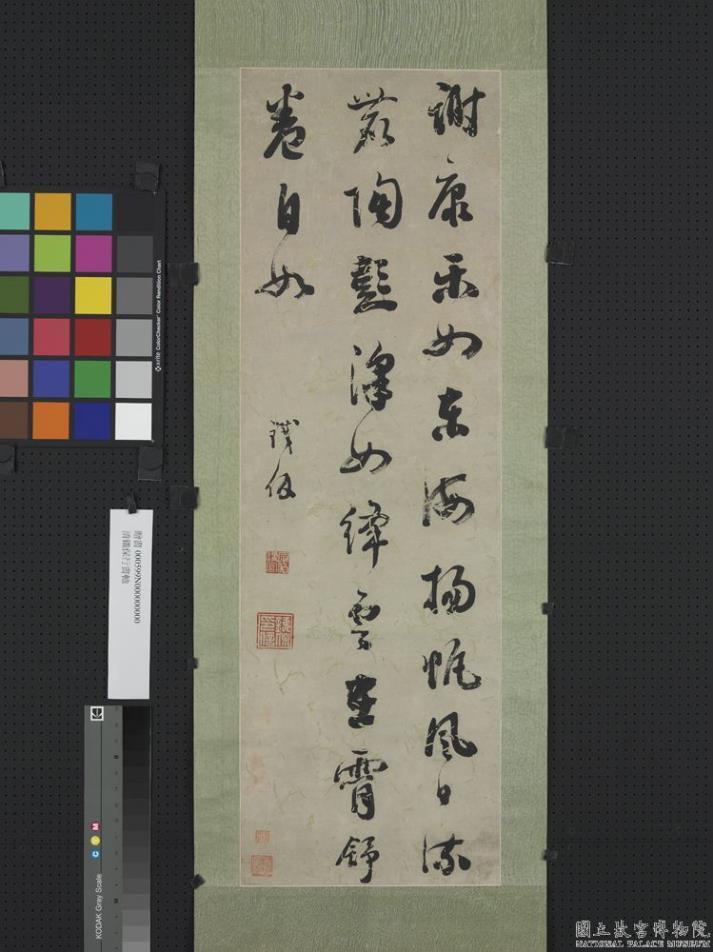 謝康樂如東海揚帆風日流
麗陶彭澤如絳雲在霄舒
卷自如
鐵保
贈書 000599N000000000
清鐵保行書軸
x-rite ColorChecker Color Rendition Chart
KODAK Gray Scale
C Y M
國立故宮博物院
NATIONAL PALACE MUSEUM